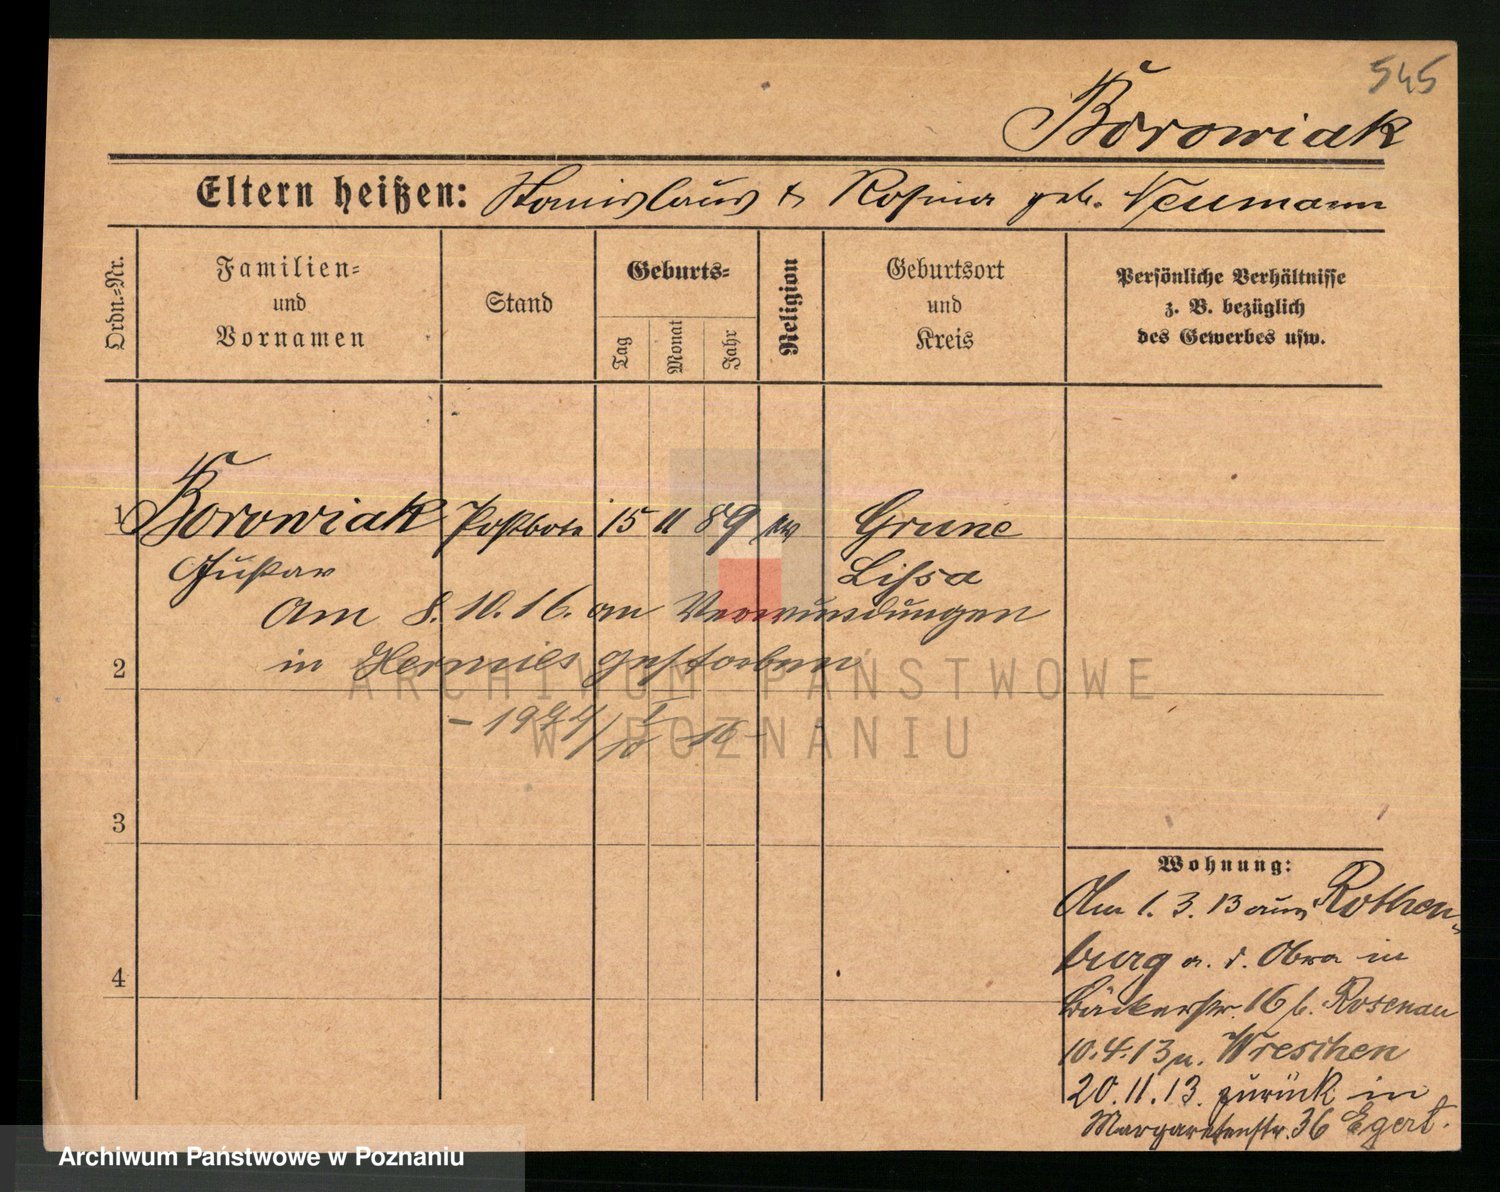 545
Borowiak
Eltern heißen: Stanislaus & Rosina geb. Neumann
Ordn.-Nr.
Familien-
und
Vornamen
Stand
Geburts-
Tag
Monat
Jahr
Religion
Geburtsort
und
Kreis
Persönliche Verhältnisse
z. B. bezüglich
des Gewerbes usw.
1 Borowiak Postbote 15 11 89 ev Grune
Gustav Lissa
Am 8.10.16. an Verwundungen
2 in Hermies gestorben
3
4
Wohnung:
Am 1. 3. 13 aus Rothen-
burg a. d. Obra in
Bäckerstr. 16 b. Rosenau
10.4.13 n. Wreschen
20.11.13. zurück in
Margaretenstr. 36 Egert.
ARCHIWUM PAŃSTWOWE
W POZNANIU
Archiwum Państwowe w Poznaniu